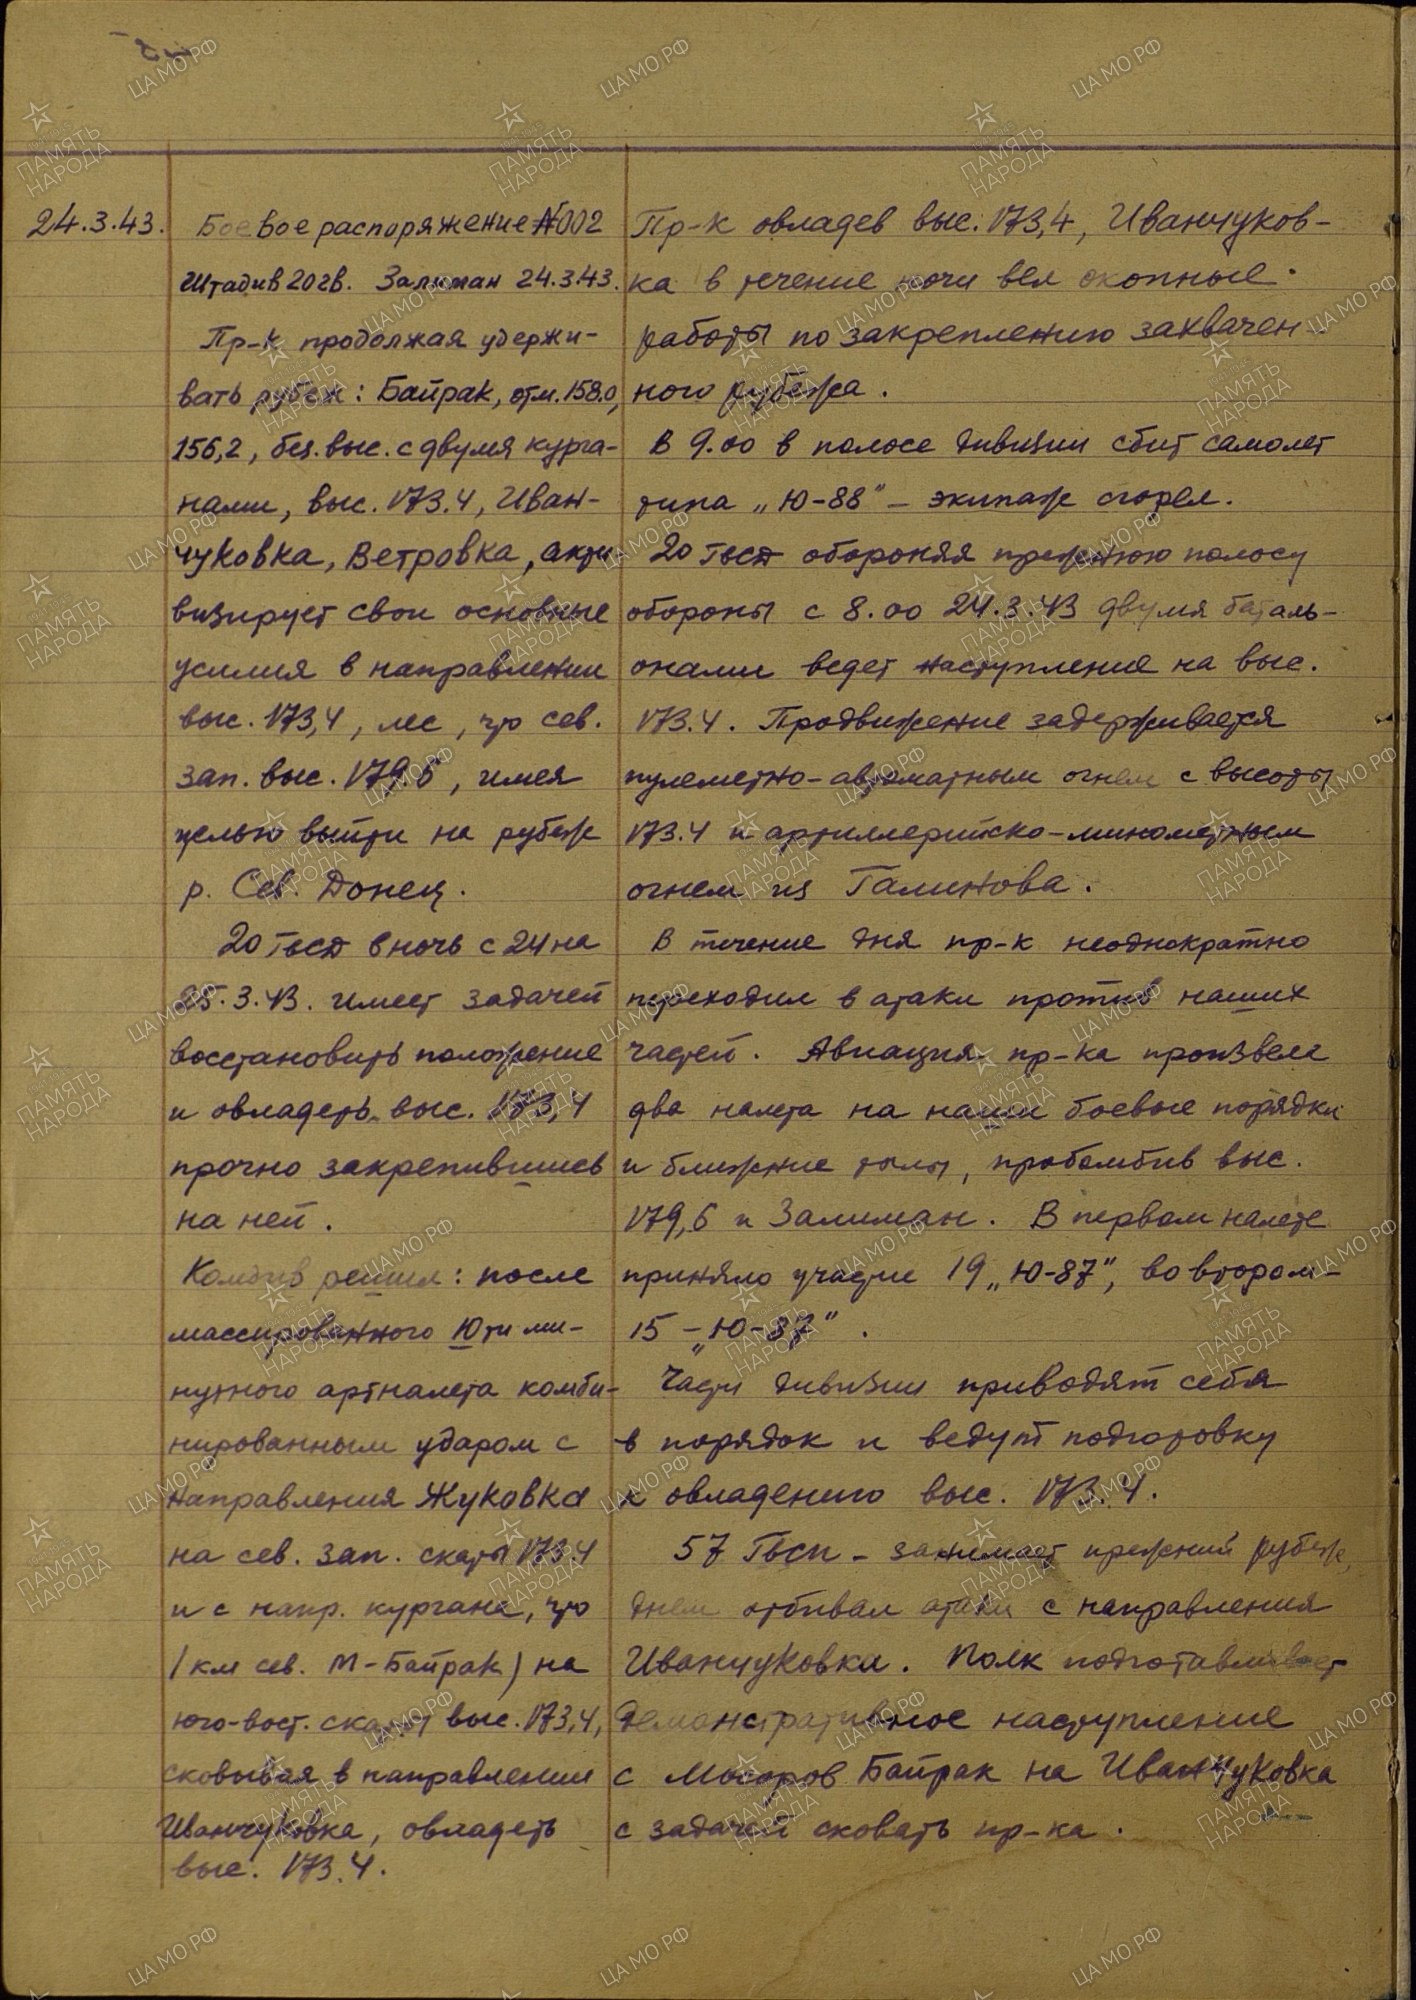 24.3.43.
Боевое распоряжение №002
Штадив 20 гв. Залиман 24.3.43.
Пр-к продолжая удержи-
вать рубеж: Байрак, отм. 158.0,
156,2, без. выс. с двумя курга-
нами, выс. 173.4, Иван-
чуковка, Ветровка, акти
визирует свои основные
усилия в направлении
выс. 173,4, лес, что сев.
зап. выс. 179.6, имея
целью выйти на рубеж
р. Сев. Донец.
20 Гвсд в ночь с 24 на
25.3.43. имеет задачей
восстановить положение
и овладеть выс. 173,4
прочно закрепившись
на ней.
Комдив решил: после
массированного 10ти ми-
нутного артналета комби-
нированным ударом с
направления Жуковка
на сев. зап. скаты 173.4
и с напр. кургана, что
1 км сев. М-Байрак) на
юго-вост. скаты выс. 173,4,
сковывая в направлении
Иванчуковка, овладеть
выс. 173.4.
Пр-к овладев выс. 173,4, Иванчуков-
ка в течение ночи вел окопные
работы по закреплению захвачен-
ного рубежа.
В 9.00 в полосе дивизии сбит самолет
типа „Ю-88" – экипаж сгорел.
20 Гвсд обороняя прежнюю полосу
обороны с 8.00 24.3.43 двумя баталь-
онами ведет наступление на выс.
173.4. Продвижение задерживается
пулеметно-автоматным огнем с высоты
173.4 и артиллерийско-минометным
огнем из Галинова.
В течение дня пр-к неоднократно
переходил в атаки против наших
частей. Авиация пр-ка произвела
два налета на наши боевые порядки
и ближние тылы, пробомбив выс.
179,6 и Залиман. В первом налете
приняло участие 19 „Ю-87", во втором –
15 – „Ю-87".
Части дивизии приводят себя
в порядок и ведут подготовку
к овладению выс. 173.4.
57 Гвсп – занимает прежний рубеж,
днем отбивал атаки с направления
Иванчуковка. Полк подготавливает
демонстративное наступление
с Мосьпров Байрак на Иванчуковка
с задачей сковать пр-ка.
ЦА МО РФ
ПАМЯТЬ
НАРОДА